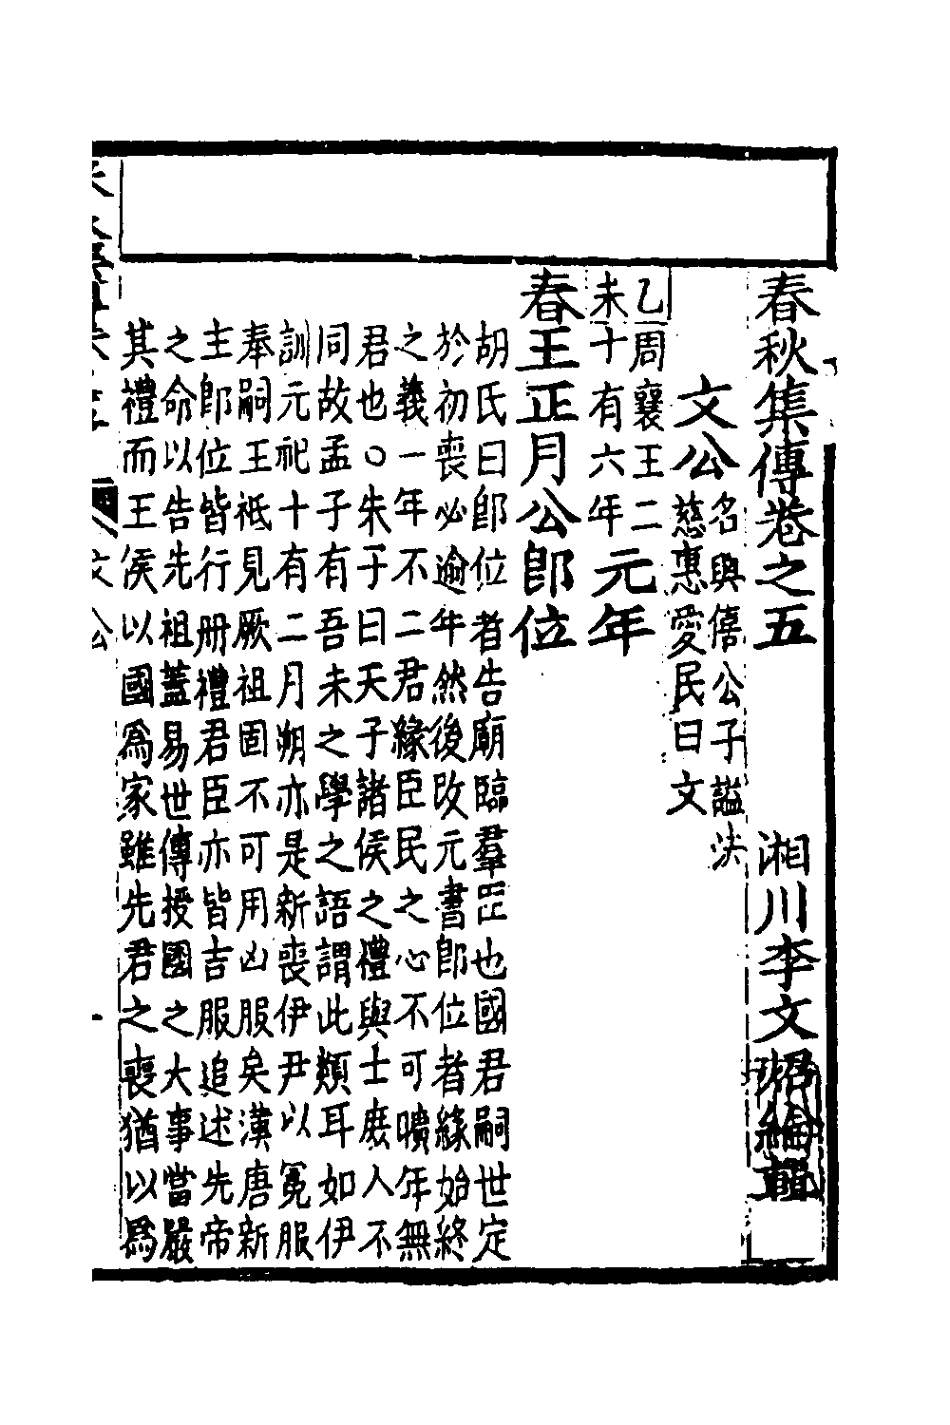 春秋集傳卷之五
湘川李文炤編輯
文公 名興僖公子謚法
慈惠愛民曰文
乙周襄王二
未十有六年 元年
春王正月公卽位
胡氏曰卽位者告廟臨羣臣也國君嗣世定
於初喪必逾年然後改元書卽位者緣始終
之義一年不二君緣臣民之心不可曠年無
君也〇朱子曰天子諸侯之禮與士庶人不
同故孟子有吾未之學之語謂此類耳如伊
訓元祀十有二月朔亦是新喪伊尹以冕服
奉嗣王祗見厥祖固不可用凶服矣漢唐新
主卽位皆行册禮君臣亦皆吉服追述先帝
之命以告先祖蓋易世傳授國之大事當嚴
其禮而王侯以國爲家雖先君之喪猶以爲
文公